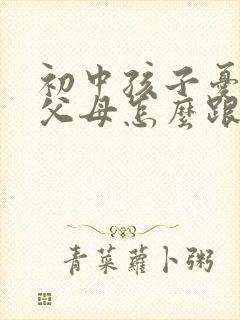 初中孩子憂
父母怎麼跟
青菜蘿卜粥